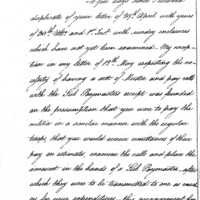 A few days since I received
duplicate of your letter of 29th April with yours
of 30th Ulto. and 1st Inst. with sundry enclosures
which have not yet been examined. My inquiries
in my letter of 12th May respecting the ne-
cessity of having a set of Muster and pay rolls
with the Sub Paymasters receipts was founded
on the presumption that you were to pay the
militia in a similar manner with the regular
troops, that you would receive remittances of their
pay on estimates, examine the rolls and place the
amount in the hands of a Sub Paymaster, after
which they were to be transmitted to me as vouch-
ers for your expenditures, this arrangement